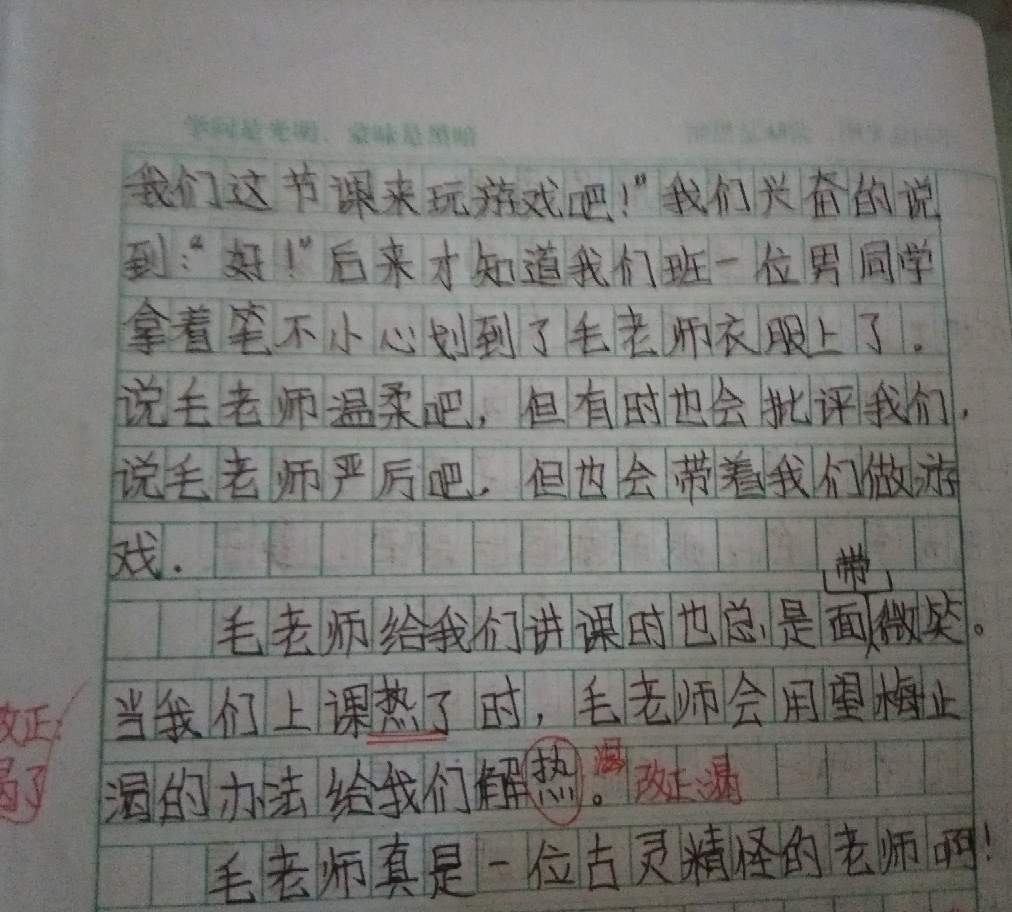 学问是光明，蒙昧是黑暗
我们这节课来玩游戏吧！”我们兴奋的说
到：“好！”后来才知道我们班一位男同学
拿着笔不小心划到了毛老师衣服上了。
说毛老师温柔吧，但有时也会批评我们，
说毛老师严厉吧，但也会带着我们做游
戏．
带
毛老师给我们讲课时也总是面微笑。
当我们上课热了时，毛老师会用望梅止
改正：
渴了
渴的办法给我们解热。渴 改正：渴
毛老师真是一位古灵精怪的老师啊！